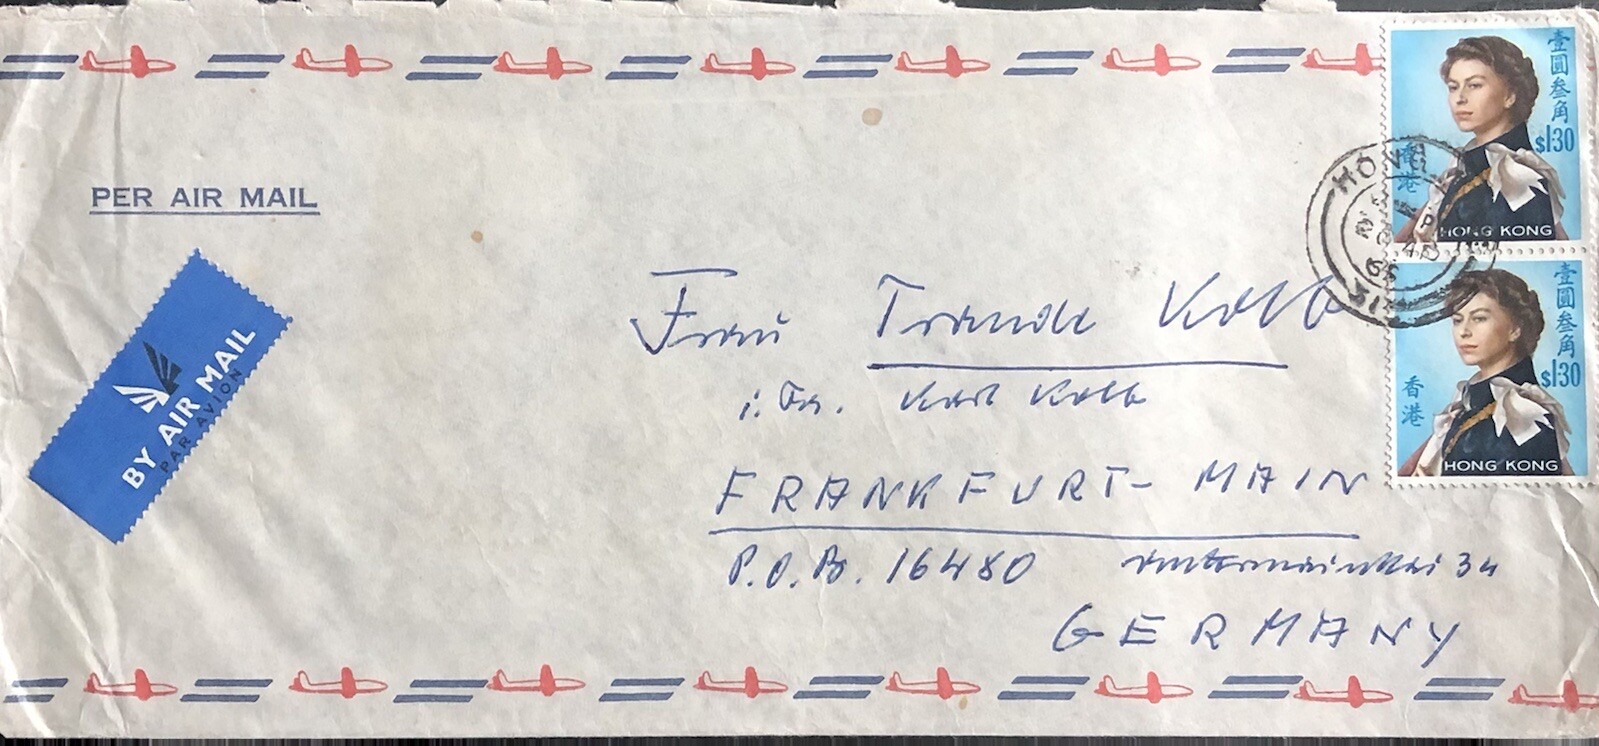 PER AIR MAIL
BY AIR MAIL
PAR AVION
壹圓叁角
$1.30
香港
HONG KONG
壹圓叁角
$1.30
香港
HONG KONG
HONG
Frau Traude Kolb
i. Fa. Karl Kolb
FRANKFURT-MAIN
P.O.B. 16480 Untermainkai
GERMANY